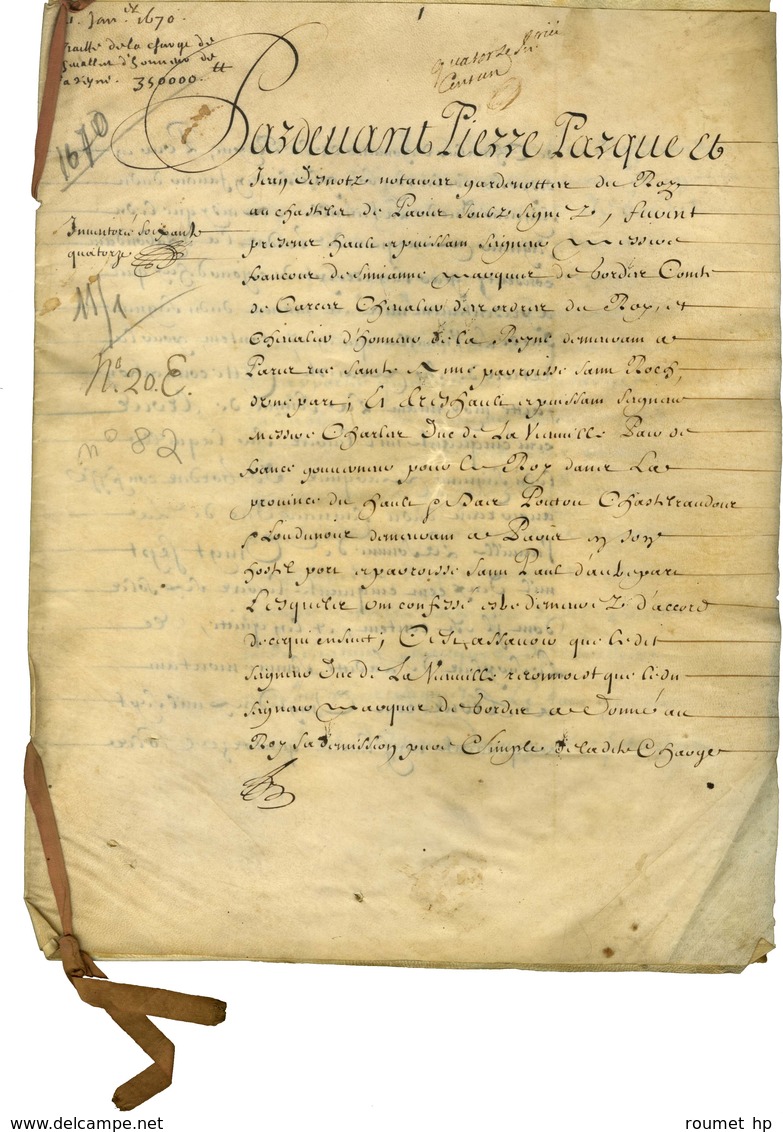 Janer 1670
traitté de la charge de
d'honneur de
350000 tt
1
quatorze
1670
Inventorié soixante
quatorze
11/1
No. 20. E.
no 82
Pardevant Pierre Parque et
Jean Desnotz notaires gardenottes du Roy
au chastelet de Paris soubz signez, furent
presens hault et puissant seigneur Messire
francois de simianne marquis de Gordes Comte
de Carces Chevalier des ordres du Roy, et
Chevalier d'honneur de la Reyne demeurant a
Paris rue sainte Anne parroisse saint Roch,
d'une part, Et tres hault et puissant seigneur
messire Charles Duc de La Vieuville Pair de
france gouverneur pour le Roy dans La
province du hault & bas Poitou Chastelraudois
& Loudunois demeurant a Paris en son
hostel parroisse saint Paul d'autre part
Lesquels ont confessé estre demeurez d'accord
de ce qui ensuit, C'est assavoir que ledit
seigneur Duc de La Vieuville reconnoist que ledit
seigneur Marquis de Gordes a Donné au
Roy sa demission pure & simple de ladite Charge
roumet hp
www.delcampe.net